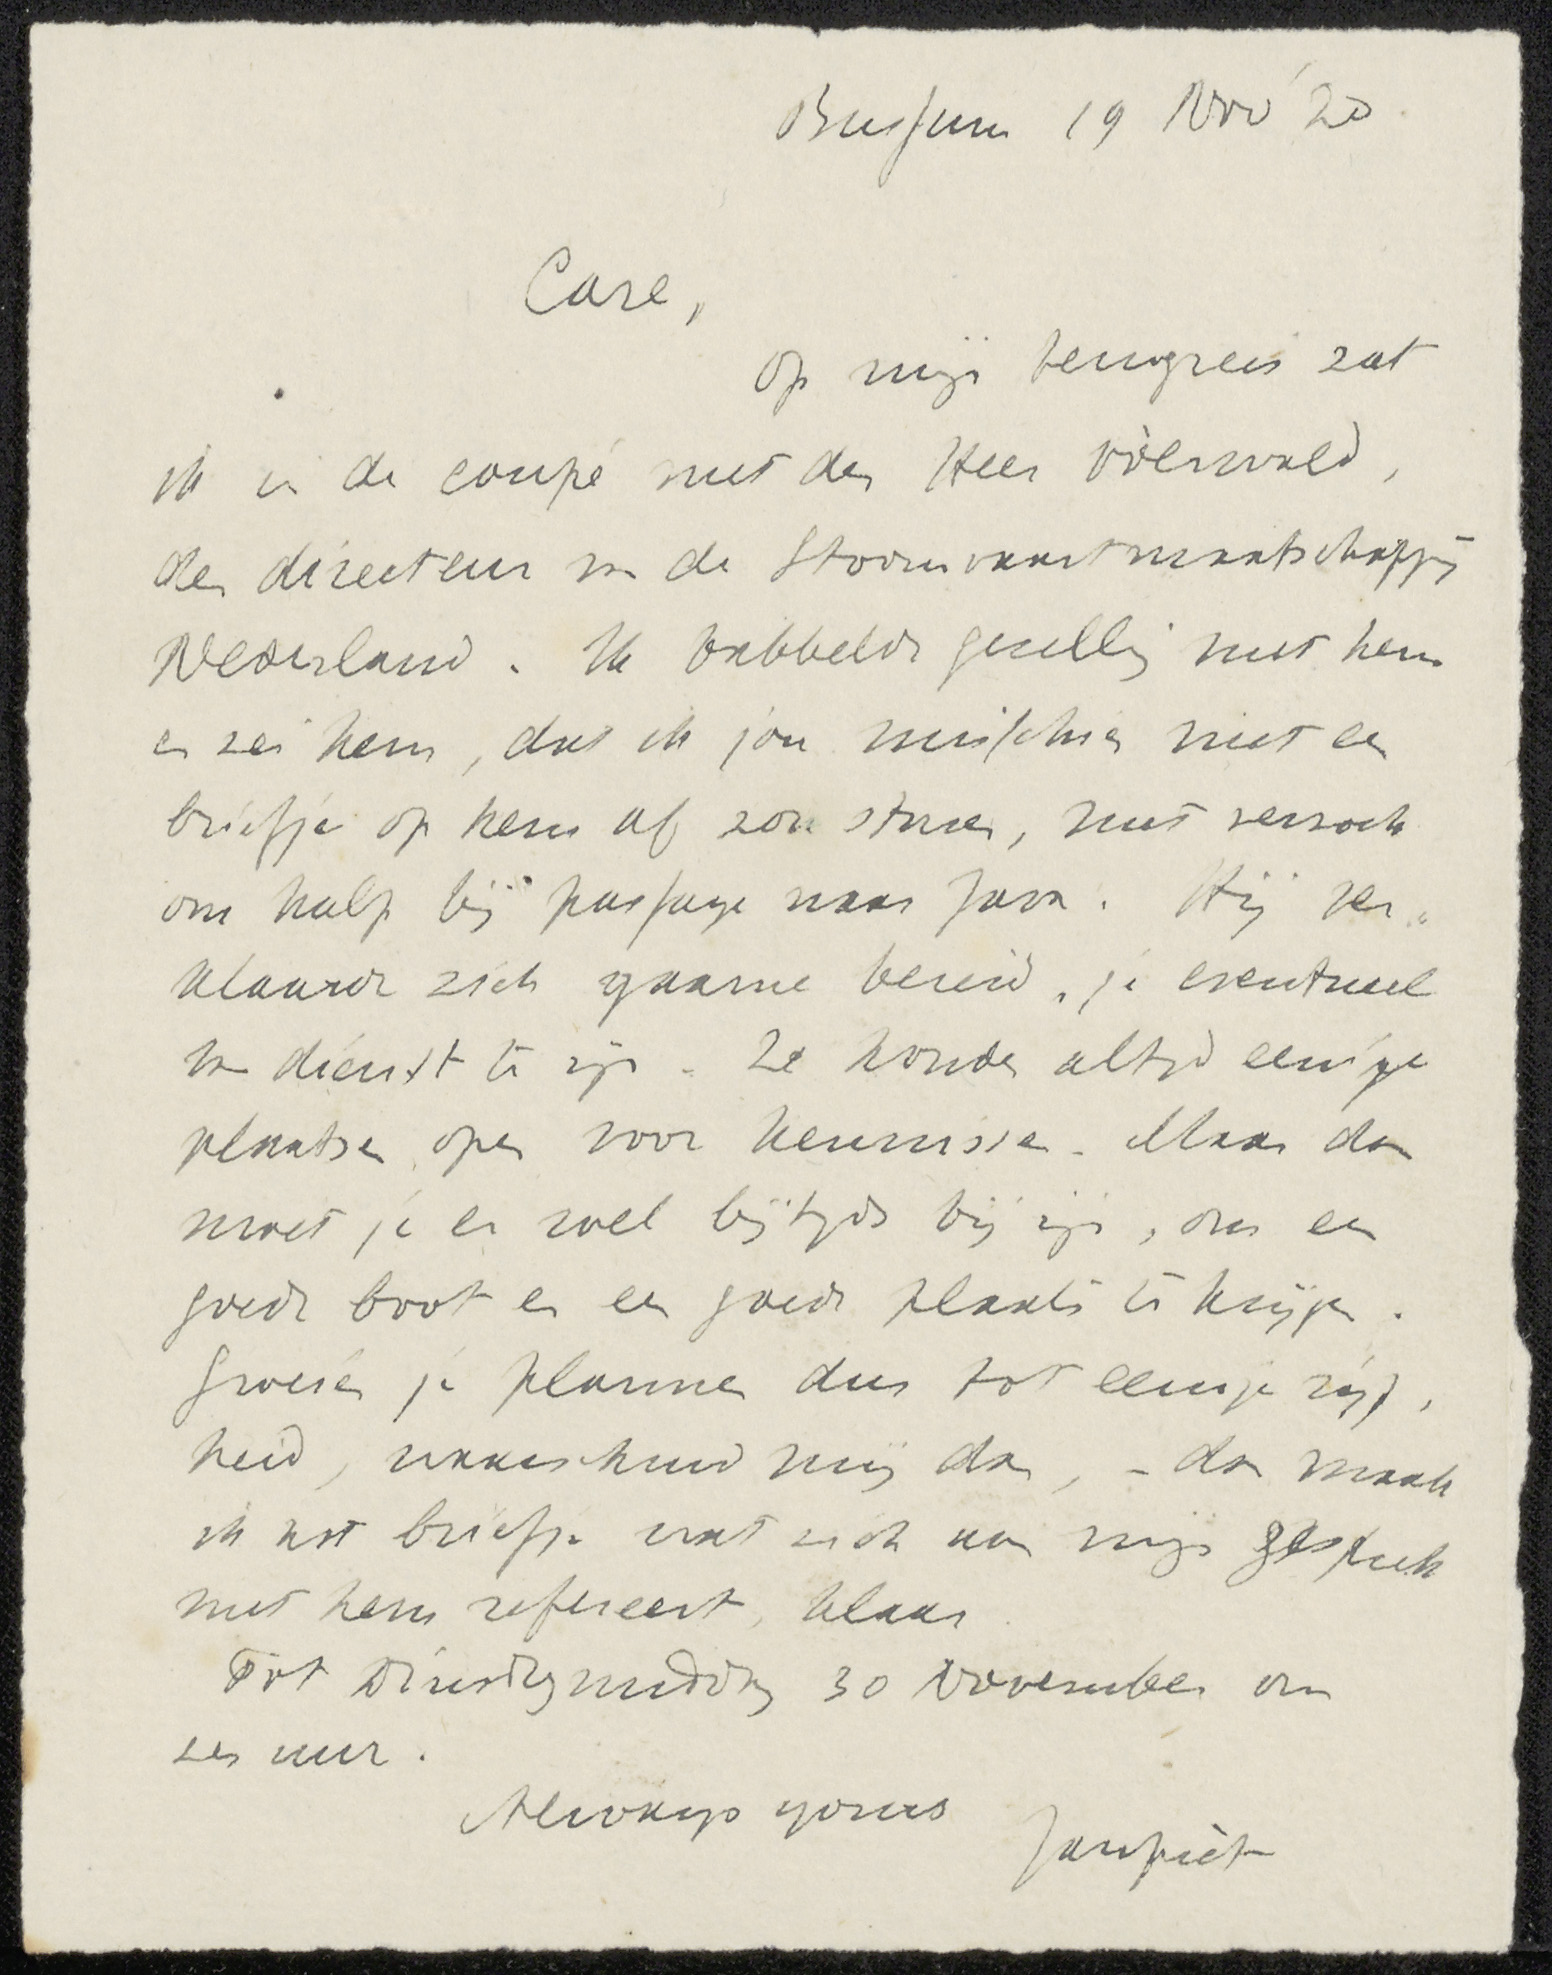 Bussum 19 Nov '20
Care,
Op mijn terugreis zat
ik in de coupé met den Heer
den directeur van de Stoomvaartmaatschappij
Nederland. Ik babbelde gezellig met hem
en zei hem, dat ik jou misschien met een
briefje op hem af zou sturen, met verzoek
om hulp bij passage naar Java. Hij ver-
klaarde zich gaarne bereid, je eventueel
van dienst te zijn. Ze houden altijd eenige
plaatsen open voor kennissen. Maar dan
moet je er wel bijtijds bij zijn, om een
goede boot en een goede plaats te krijgen.
Groeien je plannen dus tot eenige rijp-
heid, waarschuw mij dan, - dan maak
ik het briefje wat zich aan mijn gesprek
met hem refereert, klaar.
Tot Dinsdagmiddag 30 November om
zes uur.
Always yours
Janpiet